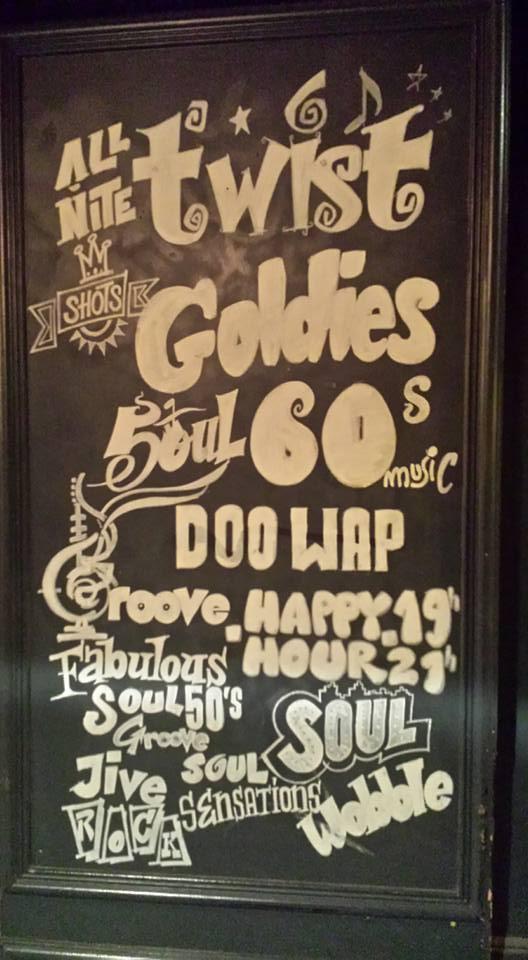 ALL NiTE twist
SHOTS
Goldies
Soul 60s
music
DOO WAP
Groove. HAPPY. 19h
HOUR 21h
Fabulous
SOUL 50's
Groove
SOUL
Jive SOUL
SENSATiONS
ROCK
Wobble